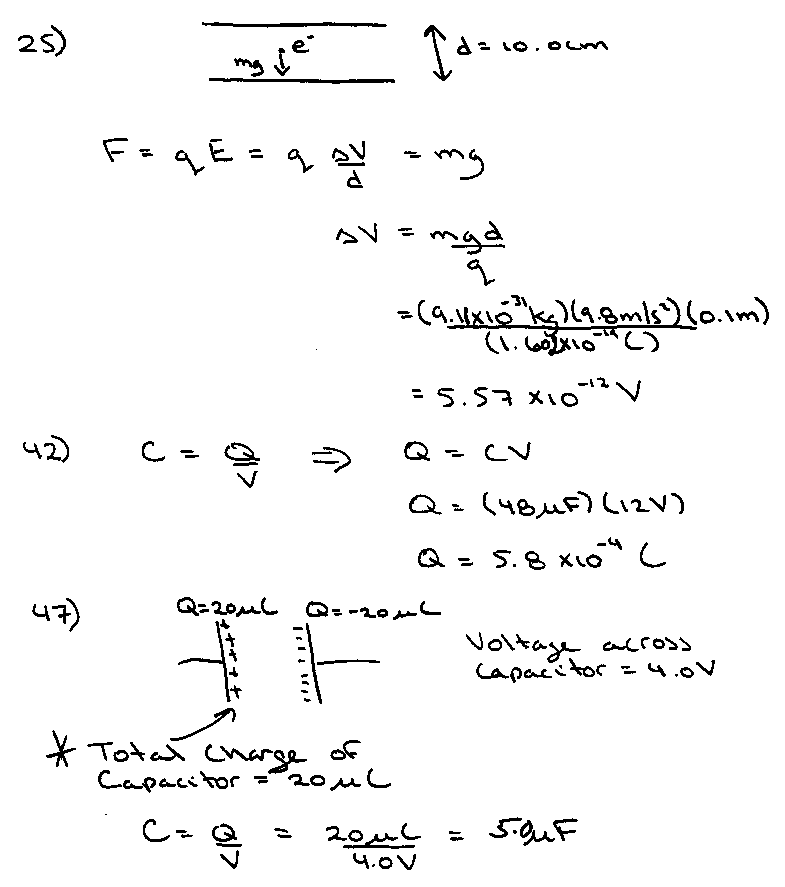 25)
mg e⁻ d = 10.0cm
F = qE = q ΔV/d = mg
ΔV = mgd/q
= (9.11x10⁻³¹ kg)(9.8m/s²)(0.1m)/(1.602x10⁻¹⁹ C)
= 5.57 x10⁻¹² V
42) C = Q/V ⇒ Q = CV
Q = (48μF)(12V)
Q = 5.8 x10⁻⁴ C
47) Q=20μC Q=-20μC
Voltage across
capacitor = 4.0V
* Total charge of
Capacitor = 20μC
C = Q/V = 20μC/4.0V = 5.0μF